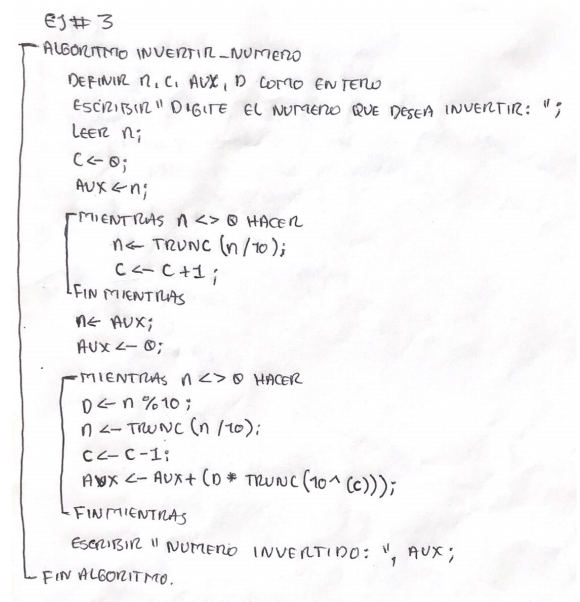 EJ# 3
ALGORITMO INVERTIR_NUMERO
DEFINIR n, C, AUX, D COMO ENTERO
ESCRIBIR " DIGITE EL NUMERO QUE DESEA INVERTIR: ";
LEER n;
C<-0;
AUX<-n;
MIENTRAS n <> 0 HACER
n<- TRUNC (n/10);
C<- C+1;
FIN MIENTRAS
n<- AUX;
AUX <- 0;
MIENTRAS n <> 0 HACER
D<- n %10;
n <- TRUNC (n /10);
C<- C-1;
AUX <- AUX+ (D * TRUNC (10^ (C)));
FINMIENTRAS
ESCRIBIR " NUMERO INVERTIDO: ", AUX;
FIN ALGORITMO.